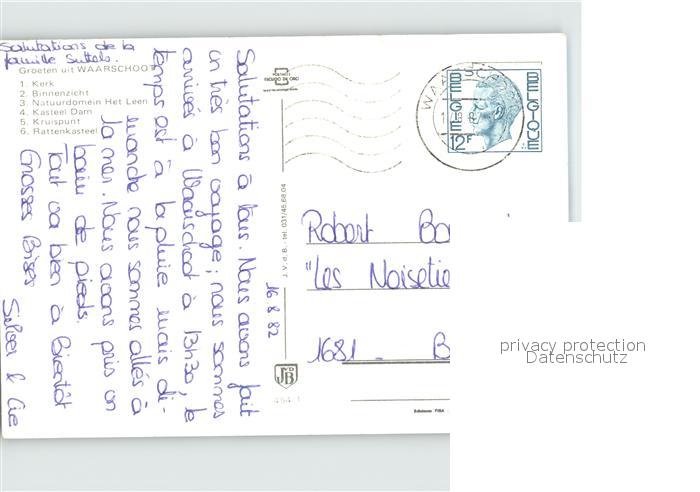 Salutations de la
famille Suttels.
Groeten uit WAARSCHOOT
1. Kerk
2. Binnenzicht
3. Natuurdomein Het Leen
4. Kasteel Dam
5. Kruispunt
6. Rattenkasteel
Salutations à tous. Nous avons fait
un très bon voyage; nous sommes
arrivés à Waarschoot à 13h30, le
temps est à la pluie mais di-
manche nous sommes allés à
la mer. Nous avons pris un
bain de pieds.
Tout va bien à bientôt
Grosses Bises
& Cie
16 8 82
J.V.d.B. - tel. 031/45.68.04
JVDB
BELGIE
BELGIQUE
12F
Robert
"Les
1681 -
privacy protection
Datenschutz